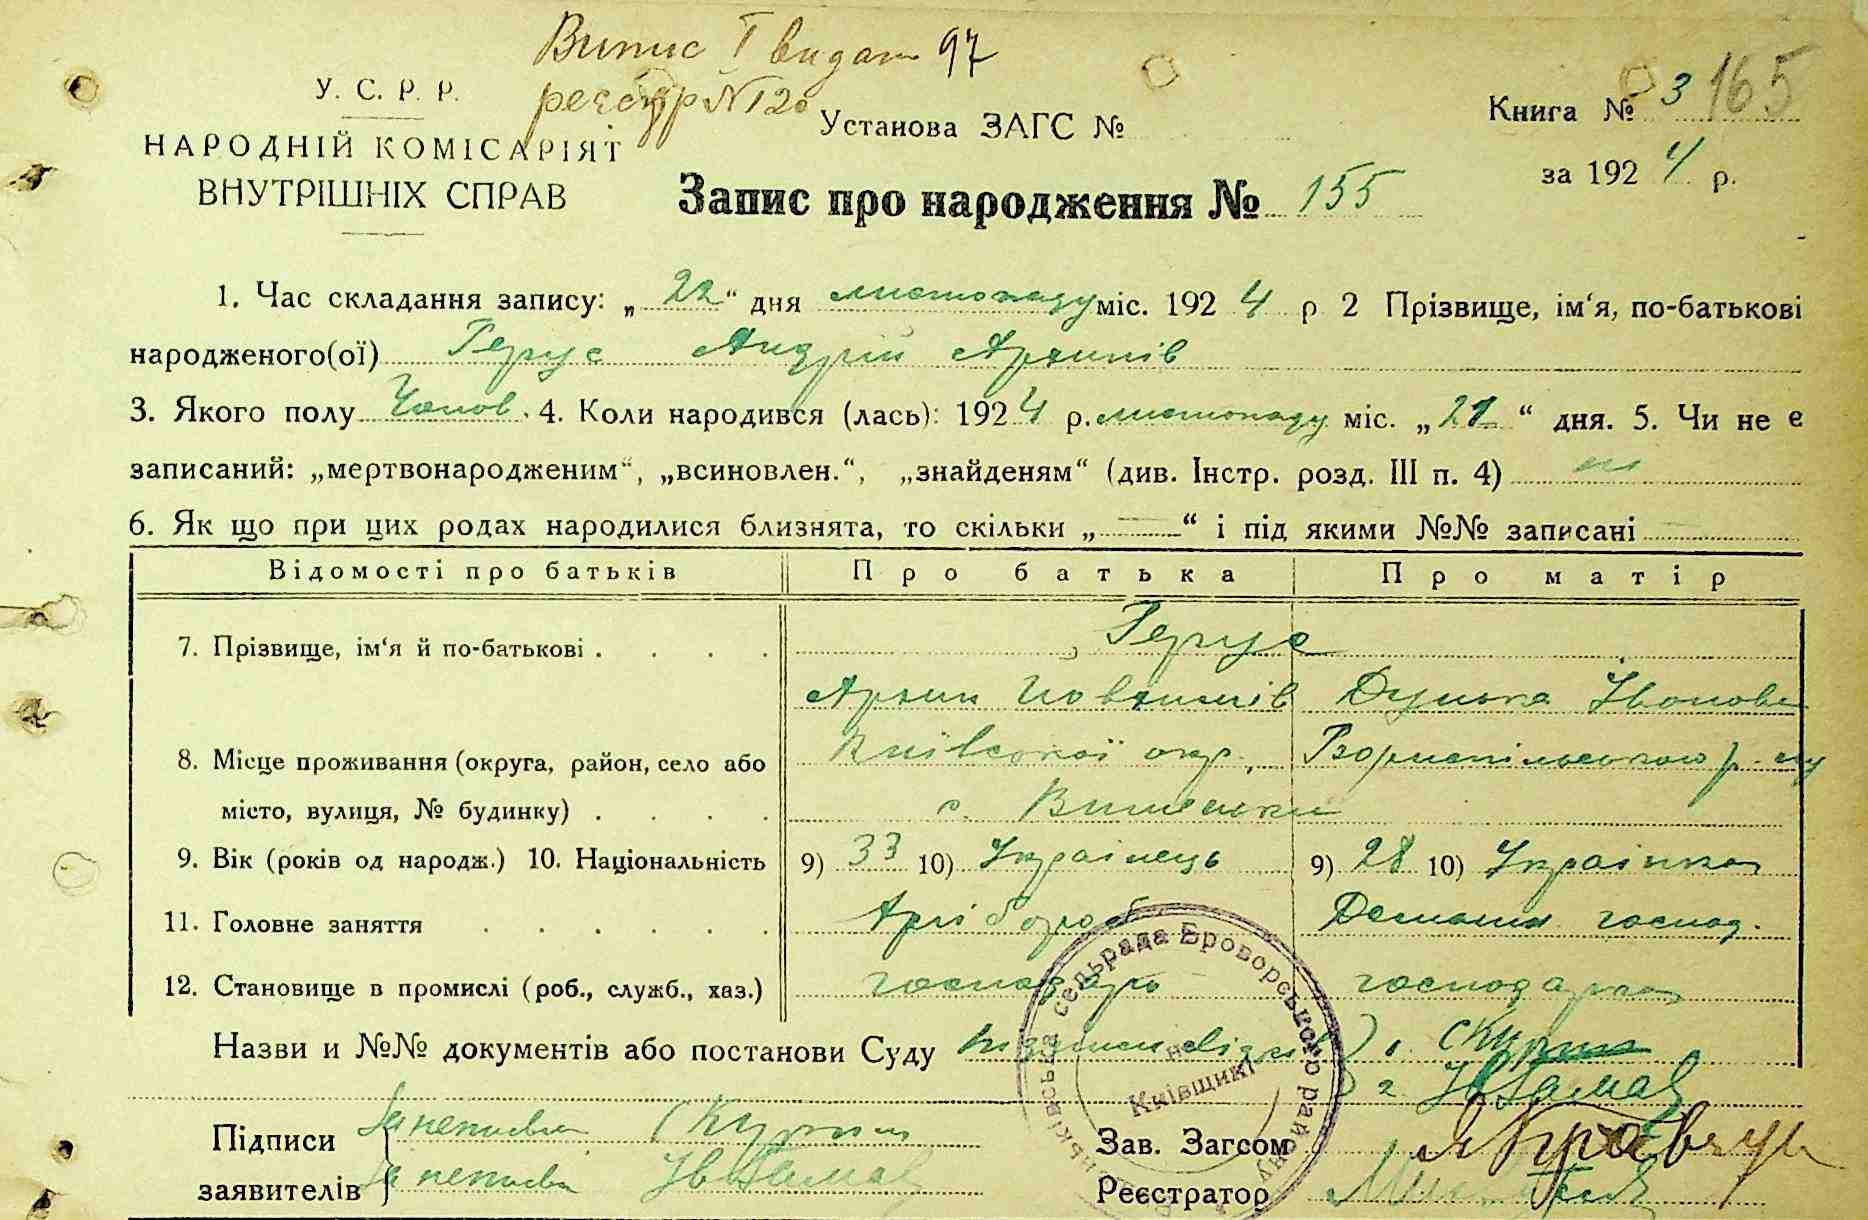 Випис І видан 97
реєстр №120
У. С. Р. Р.
НАРОДНІЙ КОМІСАРІЯТ
ВНУТРІШНІХ СПРАВ
Установа ЗАГС №
Книга № 3 165
за 1924 р.
Запис про народження № 155
1. Час складання запису: „22“ дня листопаду міс. 1924 р 2 Прізвище, ім‘я, по-батькові
народженого(ої) Герус Андрій Архипів
3. Якого полу Чолов. 4. Коли народився (лась): 1924 р. листопаду міс. „21“ дня. 5. Чи не є
записаний: „мертвонародженим“, „всиновлен.“, „знайденям“ (див. Інстр. розд. III п. 4) ні
6. Як що при цих родах народилися близнята, то скільки „—“ і під якими №№ записані
Відомості про батьків Про батька Про матір
7. Прізвище, ім‘я й по-батькові . . . . Герус
Архип Йовхимів Думка Івонова
8. Місце проживання (округа, район, село або Київської окр., Бориспільського р-ну
місто, вулиця, № будинку) . . . . с. Вишеньки
9. Вік (років од народж.) 10. Національність 9) 33 10) Українець 9) 28 10) Українка
11. Головне заняття . . . . . . Хлібороб Домашн. господ.
12. Становище в промислі (роб., служб., хаз.) господарь господарка
Назви и №№ документів або постанови Суду
Підписи
заявителів
Зав. Загсом
Реєстратор
сельрада Броворського району
на
Київщині